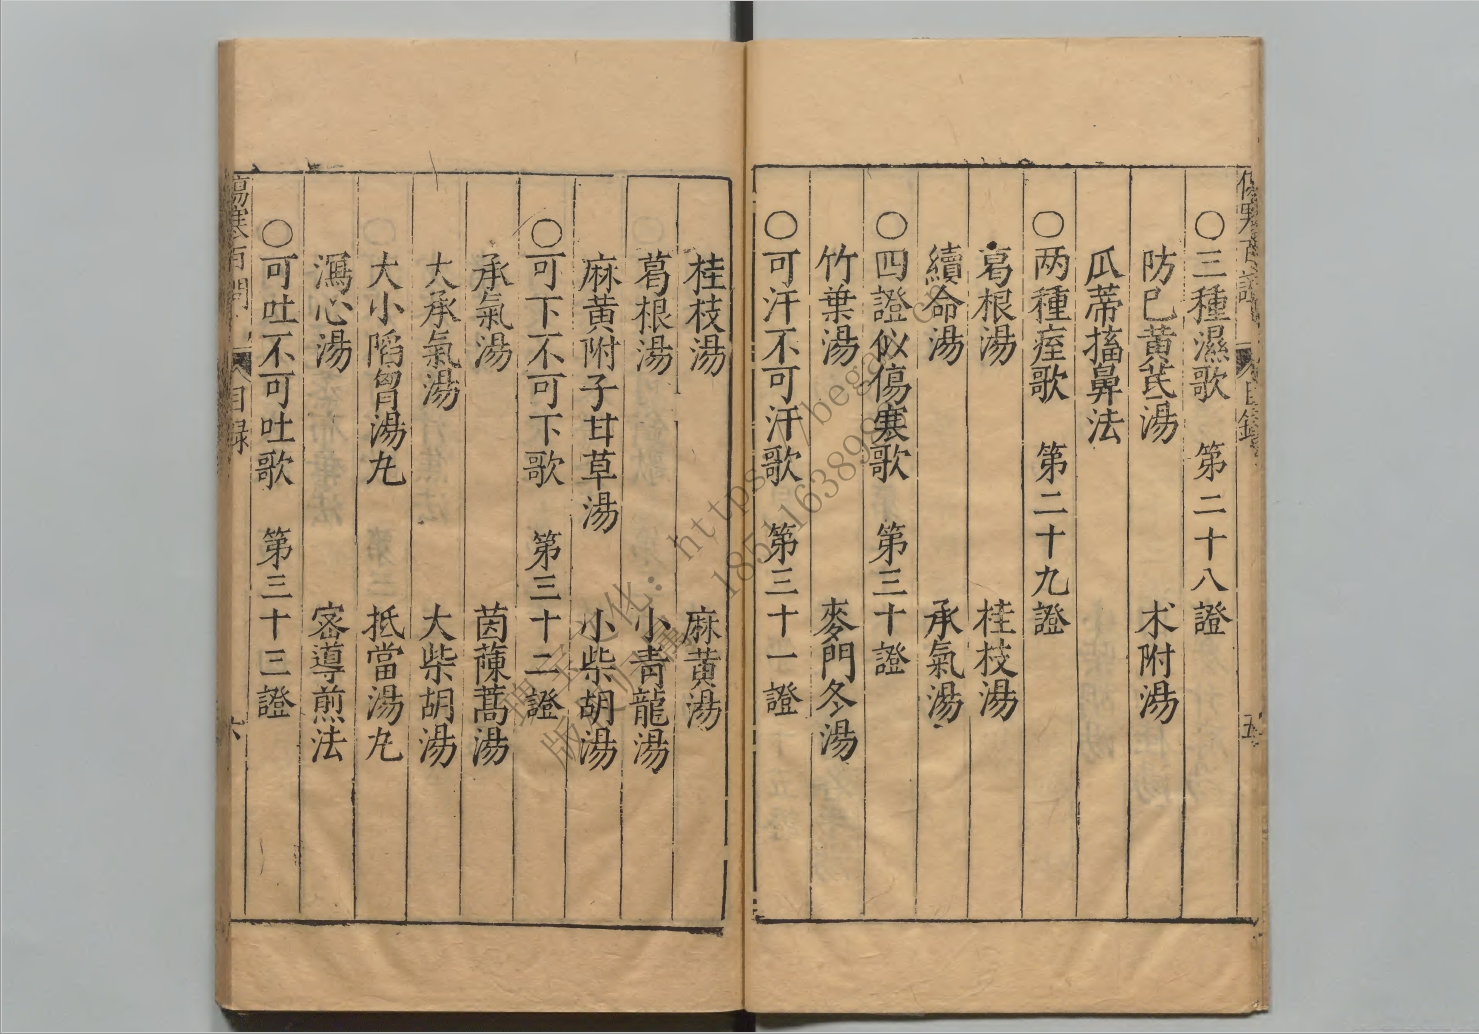 ○三種濕歌 第二十八證
防已黃芪湯 术附湯
瓜蒂搐鼻法
○两種痓歌 第二十九證
葛根湯 桂枝湯
續命湯 承氣湯
○四證似傷寒歌 第三十證
竹葉湯 麥門冬湯
○可汗不可汗歌 第三十一證
桂枝湯 麻黃湯
葛根湯 小青龍湯
麻黃附子甘草湯 小柴胡湯
○可下不可下歌 第三十二證
承氣湯 茵蔯蒿湯
大承氣湯 大柴胡湯
大小陷胷湯丸 抵當湯丸
瀉心湯 宻導煎法
○可吐不可吐歌 第三十三證
傷寒百問 目録 六